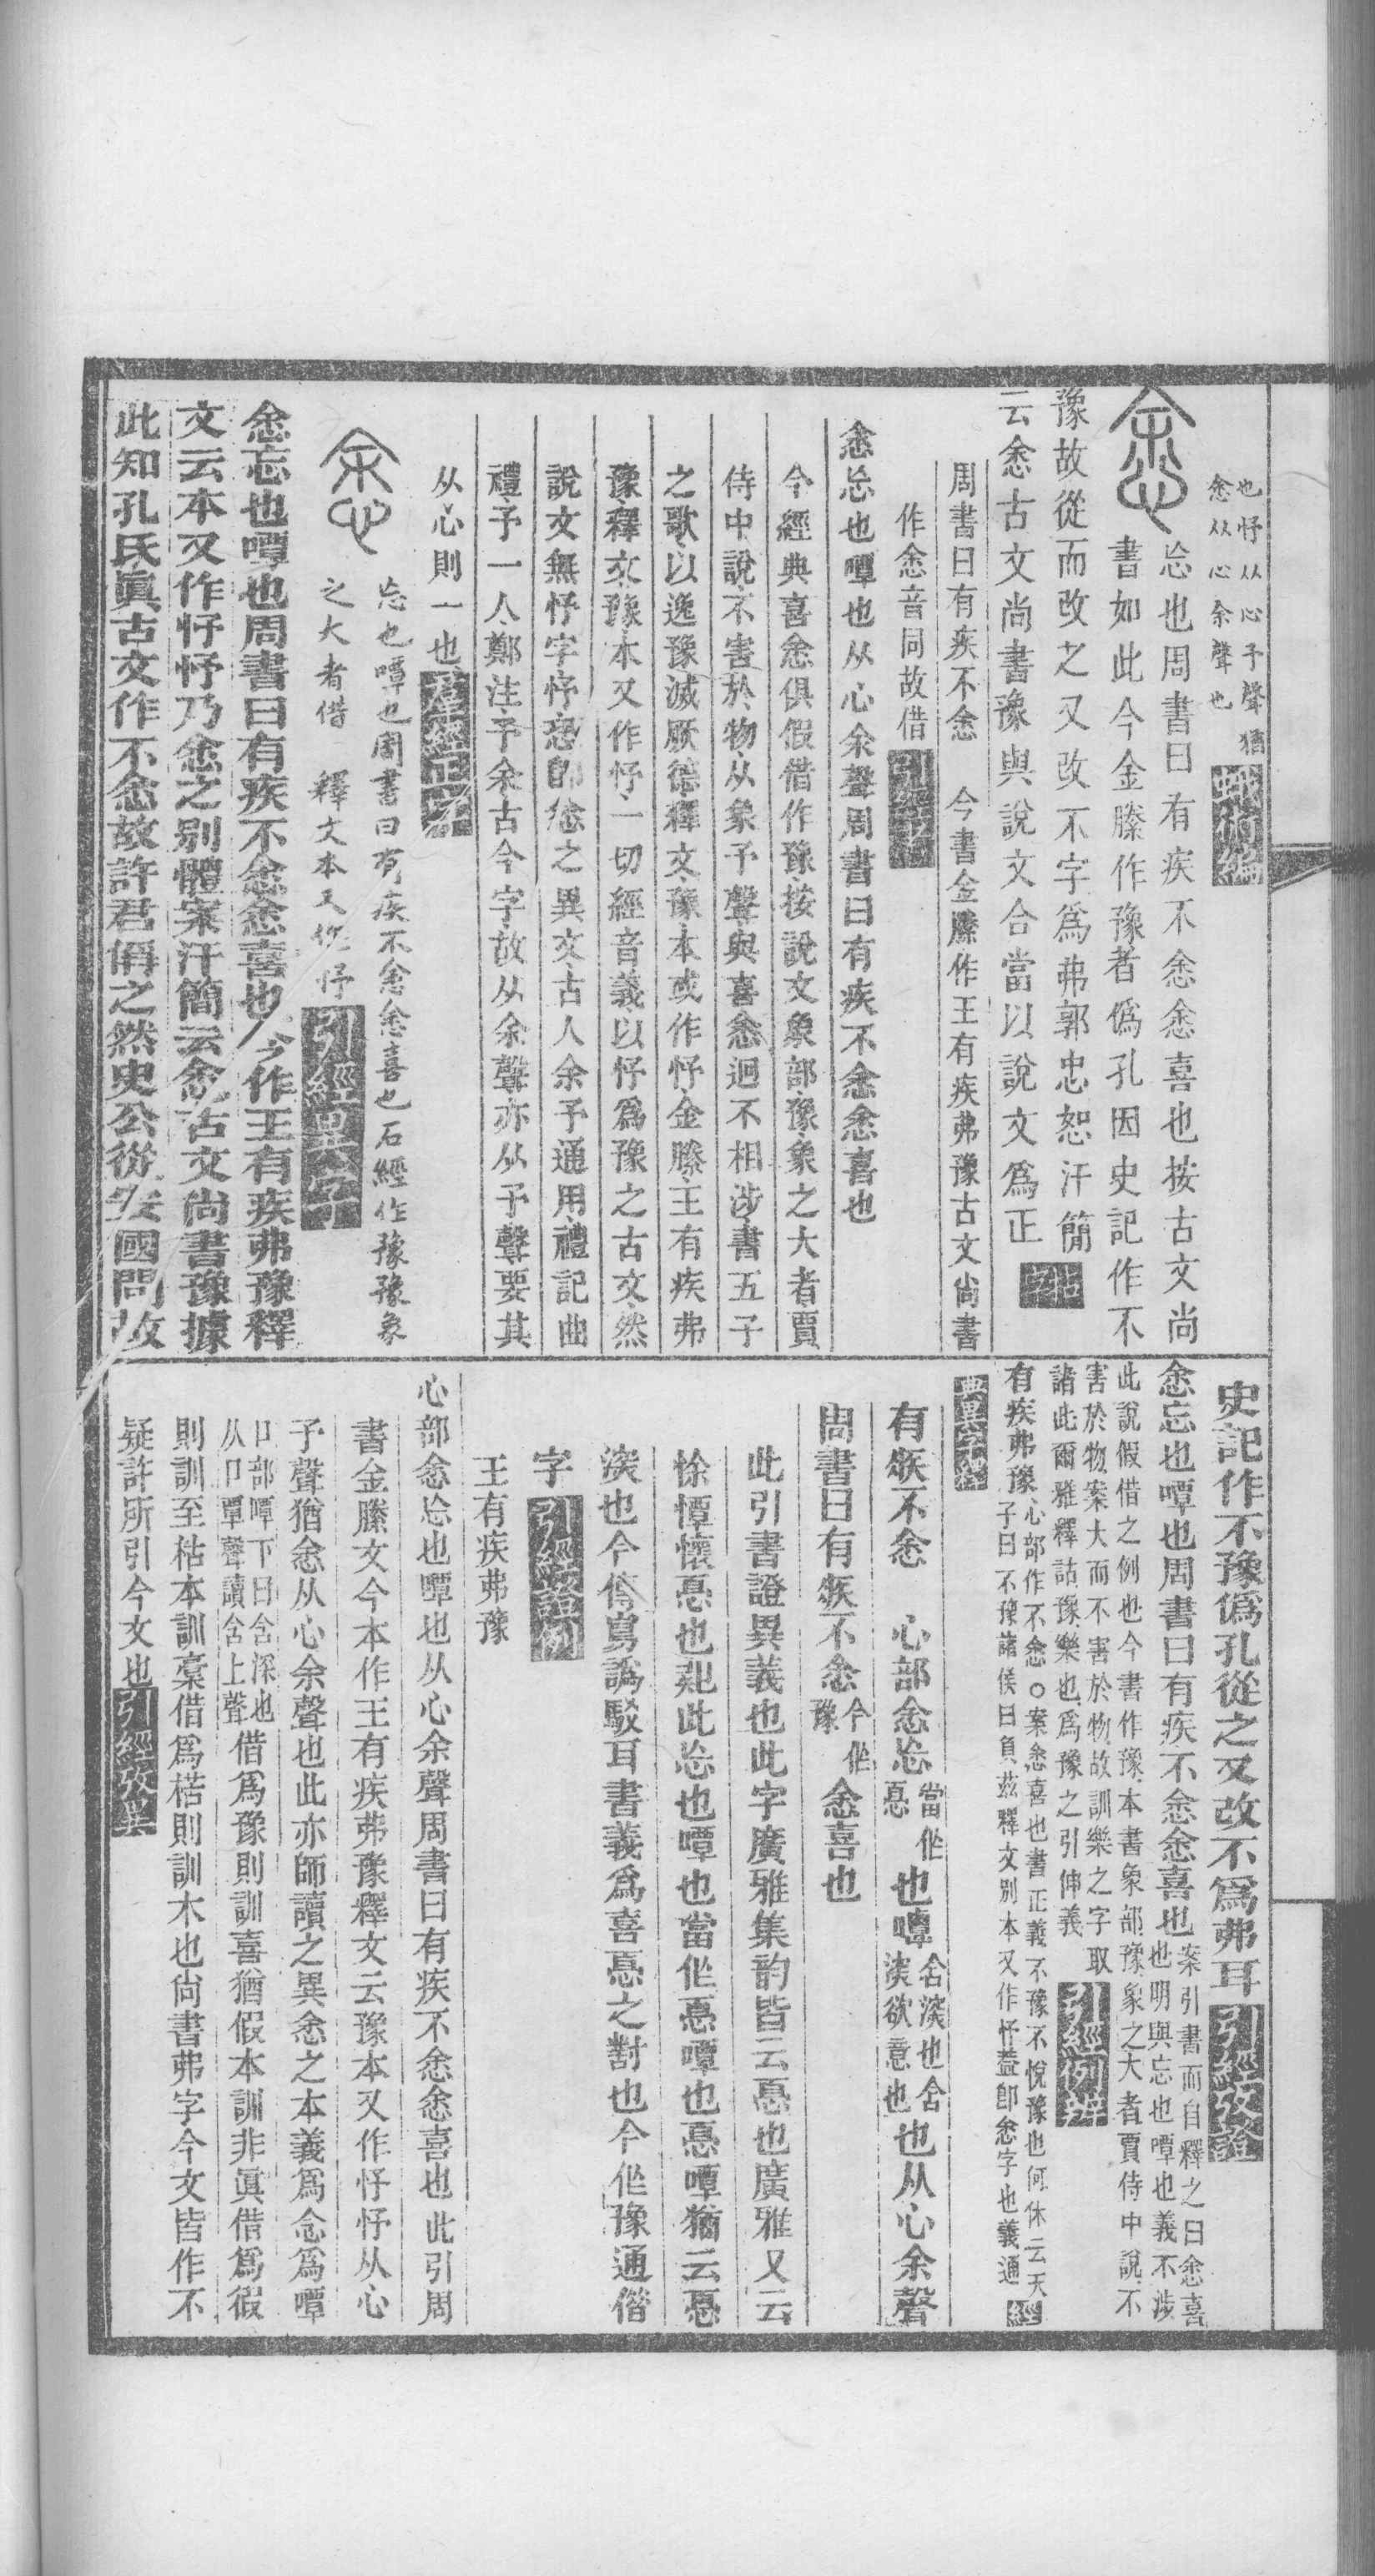 也忬从心予聲猶
悆从心余聲也
忘也周書曰有疾不悆悆喜也按古文尚
書如此今金縢作豫者僞孔因史記作不
豫故從而改之又改不字爲弗郭忠恕汗簡
云悆古文尚書豫與說文合當以說文爲正
周書曰有疾不悆 今書金縢作王有疾弗豫古文尚書
作悆音同故借
悆忘也嘾也从心余聲周書曰有疾不悆悆喜也
今經典喜悆俱假借作豫按說文象部豫象之大者賈
侍中說不害於物从象予聲與喜悆迥不相涉書五子
之歌以逸豫滅厥德釋文豫本或作忬金縢王有疾弗
豫釋文豫本又作忬一切經音義以忬爲豫之古文然
說文無忬字忬恐卽悆之異文古人余予通用禮記曲
禮予一人鄭注予余古今字故从余聲亦从予聲要其
从心則一也
忘也嘾也周書曰有疾不悆悆喜也石經作豫豫象
之大者借 釋文本又作忬
引經異字
悆忘也嘾也周書曰有疾不悆悆喜也今作王有疾弗豫釋
文云本又作忬忬乃悆之別體案汗簡云悆古文尚書豫據
此知孔氏眞古文作不悆故許君偁之然史公從安國問故
史記作不豫僞孔從之又改不爲弗耳
引經攷證
悆忘也嘾也周書曰有疾不悆悆喜也
案引書而自釋之曰悆喜
也明與忘也嘾也義不涉
此說假借之例也今書作豫本書象部豫象之大者賈侍中說不
害於物案大而不害於物故訓樂之字取
諸此爾雅釋詁豫樂也爲豫之引伸義
引經例辨
有疾弗豫
心部作不悆○案悆喜也書正義不豫不悅豫也何休云天
子曰不豫諸侯曰負茲釋文別本又作忬蓋卽悆字也義通
有疾不悆 心部悆忘當作悥也嘾含深也含深欲意也也从心余聲
周書曰有疾不悆今作豫悆喜也
此引書證異義也此字廣雅集韵皆云悥也廣雅又云
悇憛懷悥也
此忘也嘾也當作悥嘾也悥嘾猶云悥
深也今
駁耳書義爲喜悥之對也今作豫通借
字
引經證例
王有疾弗豫
心部悆忘也嘾也从心余聲周書曰有疾不悆悆喜也此引周
書金縢文今本作王有疾弗豫釋文云豫本又作忬忬从心
予聲猶悆从心余聲也此亦師讀之異悆之本義爲忘爲嘾
口部嘾下曰含深也
从口覃聲讀含上聲
借爲豫則訓喜猶假本訓非眞借爲徦
則訓至枯本訓槀借爲楛則訓木也尚書弗字今文皆作不
疑許所引今文也
引經攷